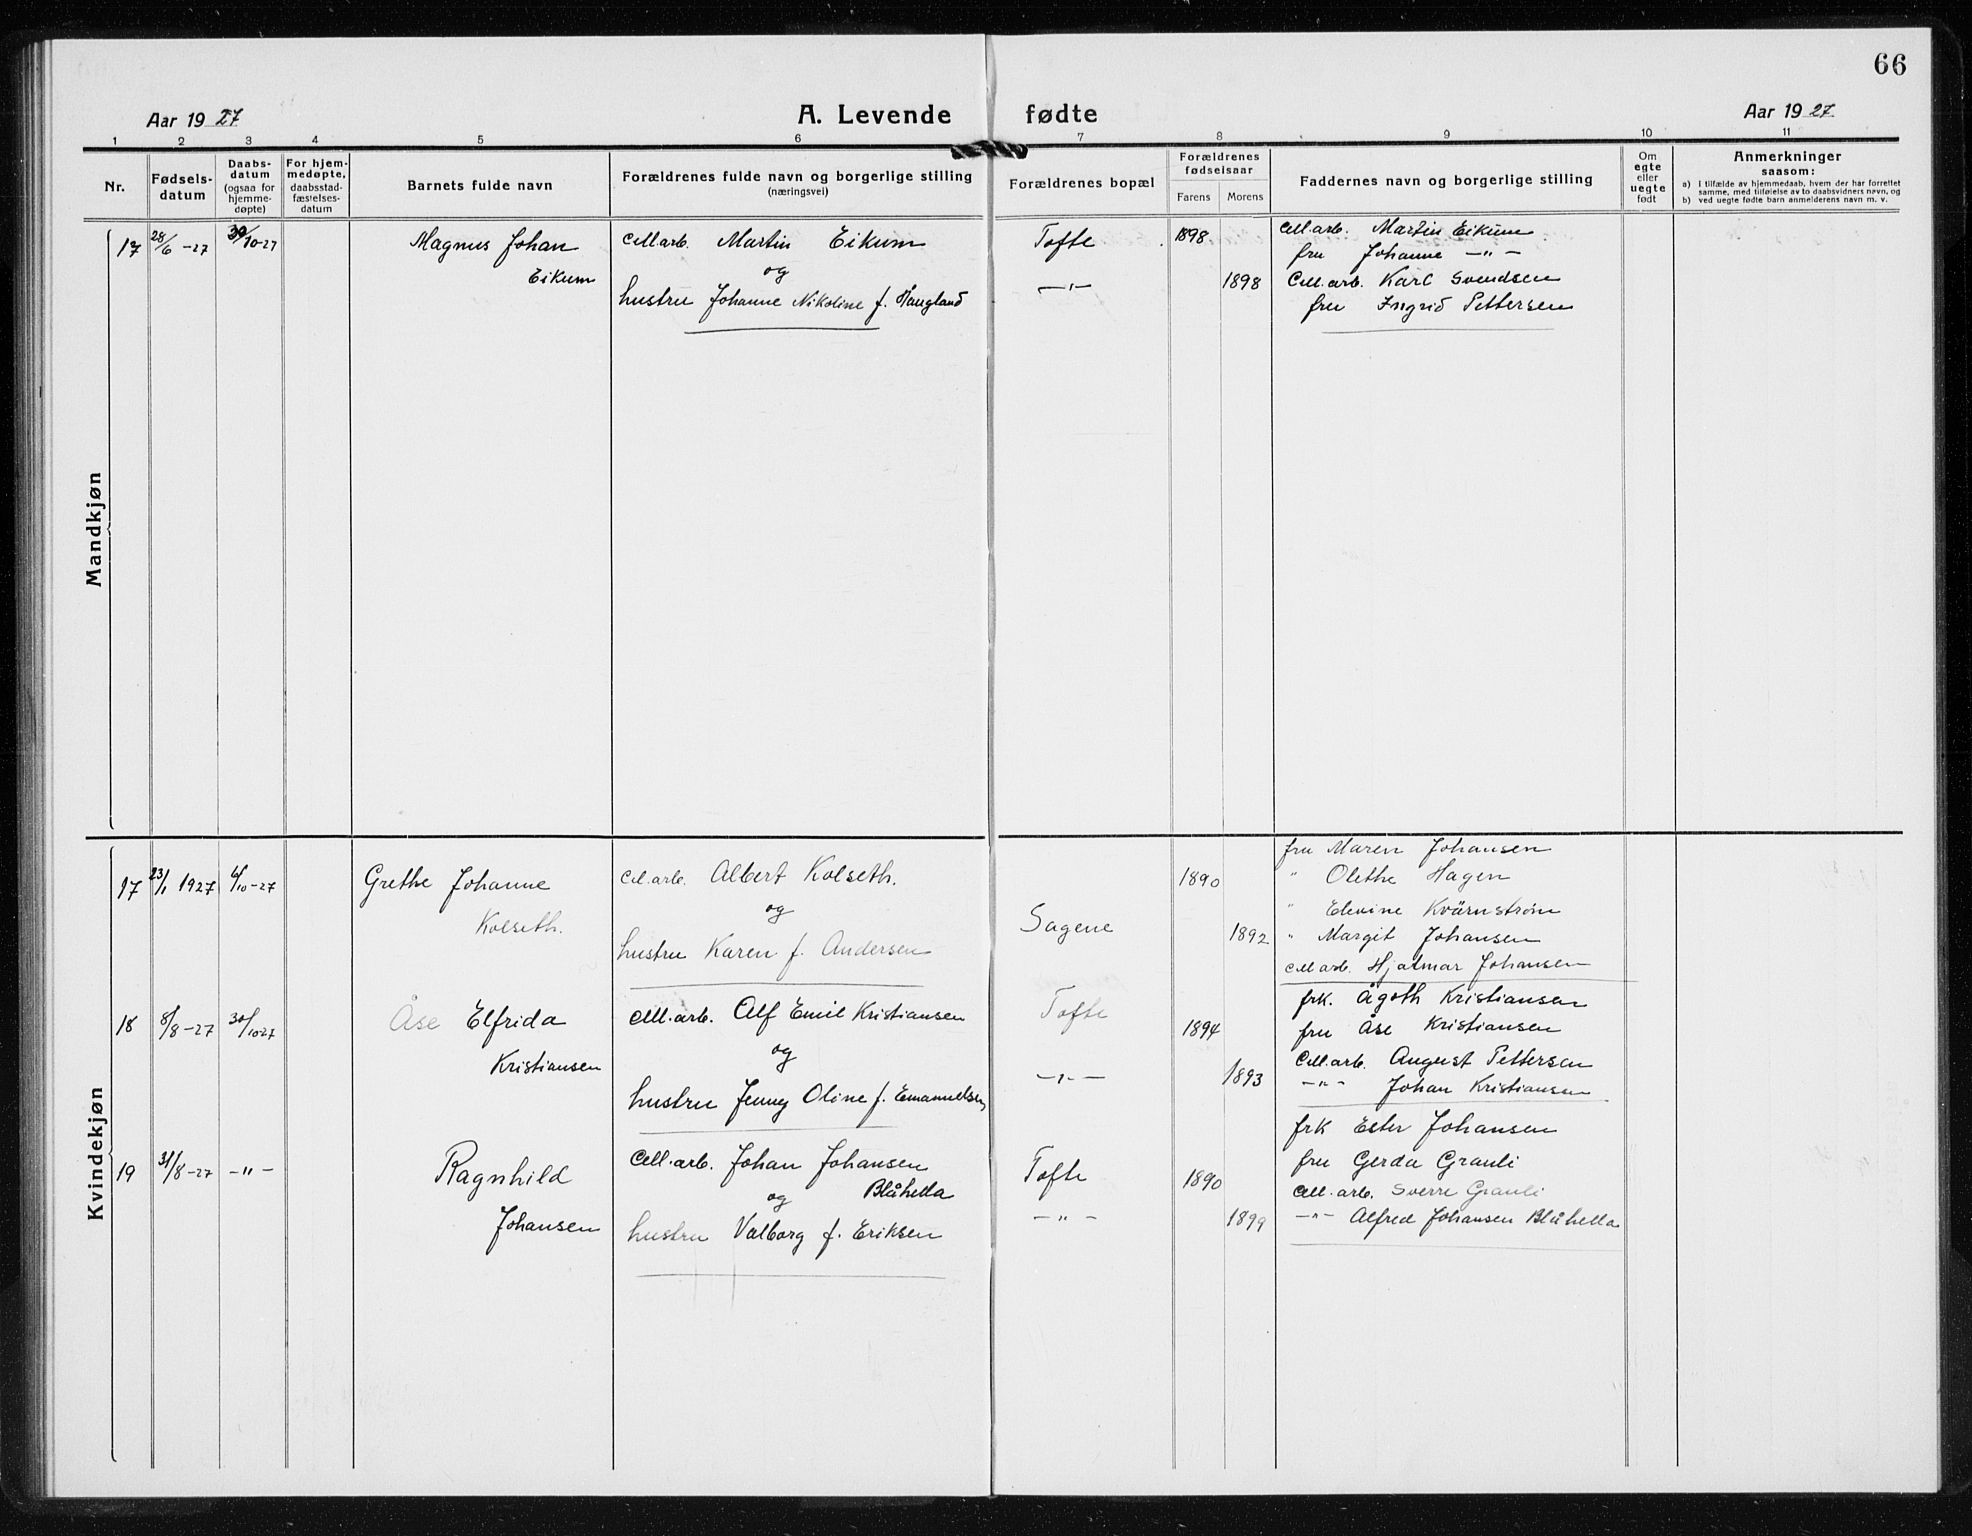 66
Aar 1927 A. Levende fødte Aar 1927
1 2 3 4 5 6 7 8 9 10 11
Nr.
Fødsels-
datum
Daabs-
datum
(ogsaa for
hjemme-
døpte)
For hjem-
medøpte,
daabsstad-
fæstelses-
datum
Barnets fulde navn
Forældrenes fulde navn og borgerlige stilling
(næringsvei)
Forældrenes bopæl
Forældrenes
fødselsaar
Farens Morens
Faddernes navn og borgerlige stilling
Om
egte
eller
uegte
født
Anmerkninger
saasom:
a) I tilfælde av hjemmedaab, hvem der har forrettet
samme, med tilføielse av to daabsvidners navn, og
b) ved uegte fødte barn anmelderens navn m. v.
Mandkjøn
17 28/6 -27 30/10-27
Magnus Johan
Eikum
Cell.arb. Martin Eikum
og
hustru Johanne Nikoline f. Haugland
Tofte
—"—
1898
1898
Cell.arb. Martin Eikum
fru Johanne —"—
Cell.arb. Karl Svendsen
fru Ingrid Pettersen
Kvindekjøn
17 23/1 1927 6/10-27
Grethe Johanne
Kolseth.
Cel.arb. Albert Kolseth.
og
hustru Karen f. Andersen
Sagene
1890
1892
fru Maren Johansen
" Olethe Hagen
" Elevine Kvärnstrøm
" Margit Johansen
Cell arb. Hjalmar Johansen
18 8/8-27 30/10-27
Åse Elfrida
Kristiansen
Cell.arb. Alf Emil Kristiansen
og
hustru Jenny Oline f. Emanuelsen
Tofte
—"—
1894
1893
frk. Ågoth Kristiansen
fru Åse Kristiansen
Cell.arb. August Pettersen
—"— Johan Kristiansen
19 31/8-27 —"—
Ragnhild
Johansen
Cell.arb. Johan Johansen
og Blåhella
hustru Valborg f. Eriksen
Tofte
—"—
1890
1899
frk Ester Johansen
fru Gerda Grauli
Cell.arb. Sverre Grauli
—"— Alfred Johansen Blåhella